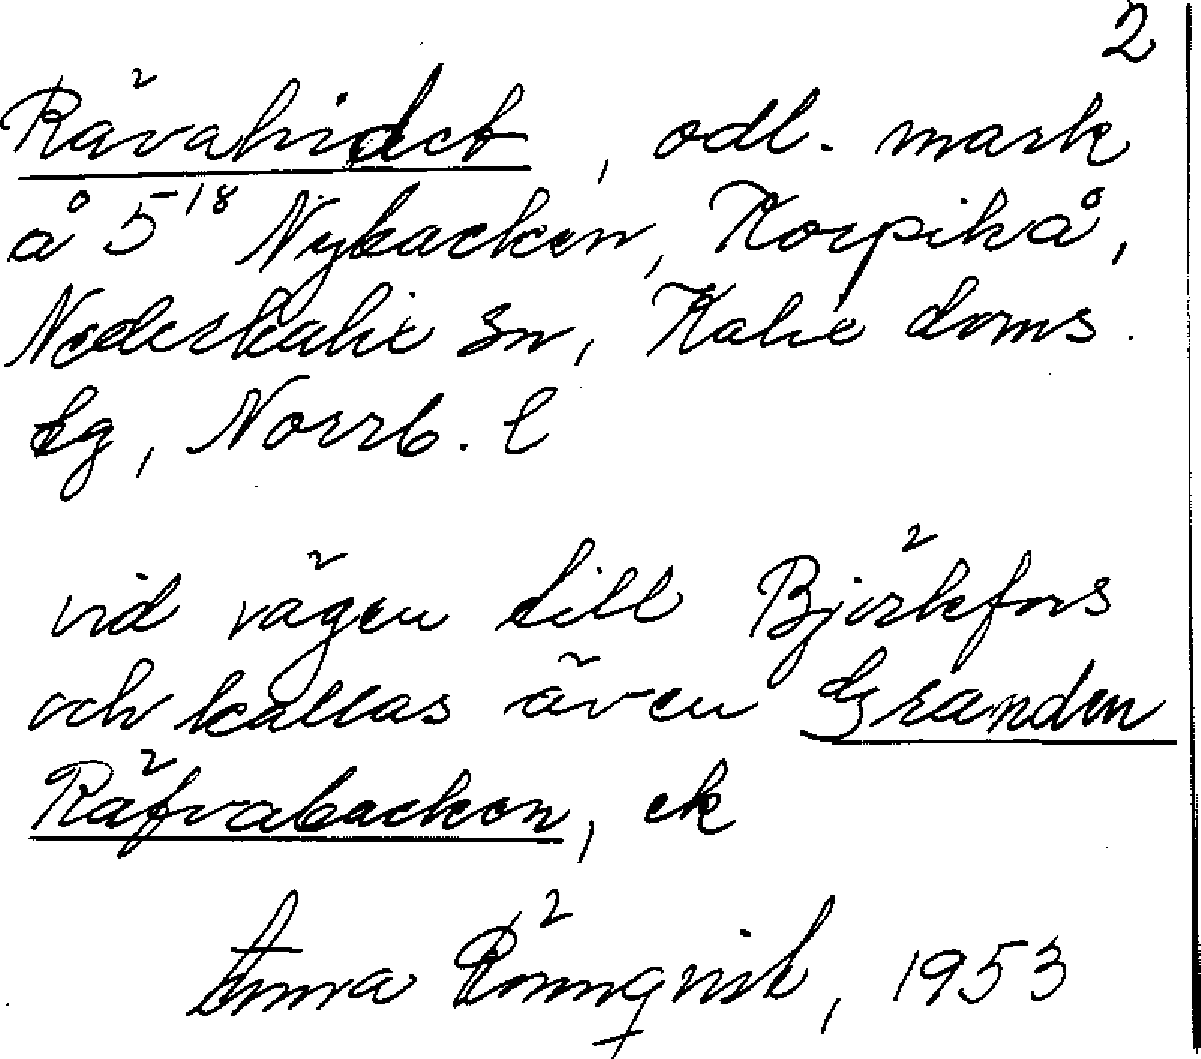 2
Rävahidet, odl. mark
å 5¹⁸ Nybacken, Korpikå,
Nederkalix sn, Kalix doms.
lg, Norrb. l
vid vägen till Björkfors
och kallas även Granden
Räfvabacken, ek
Anna Rönnqvist, 1953